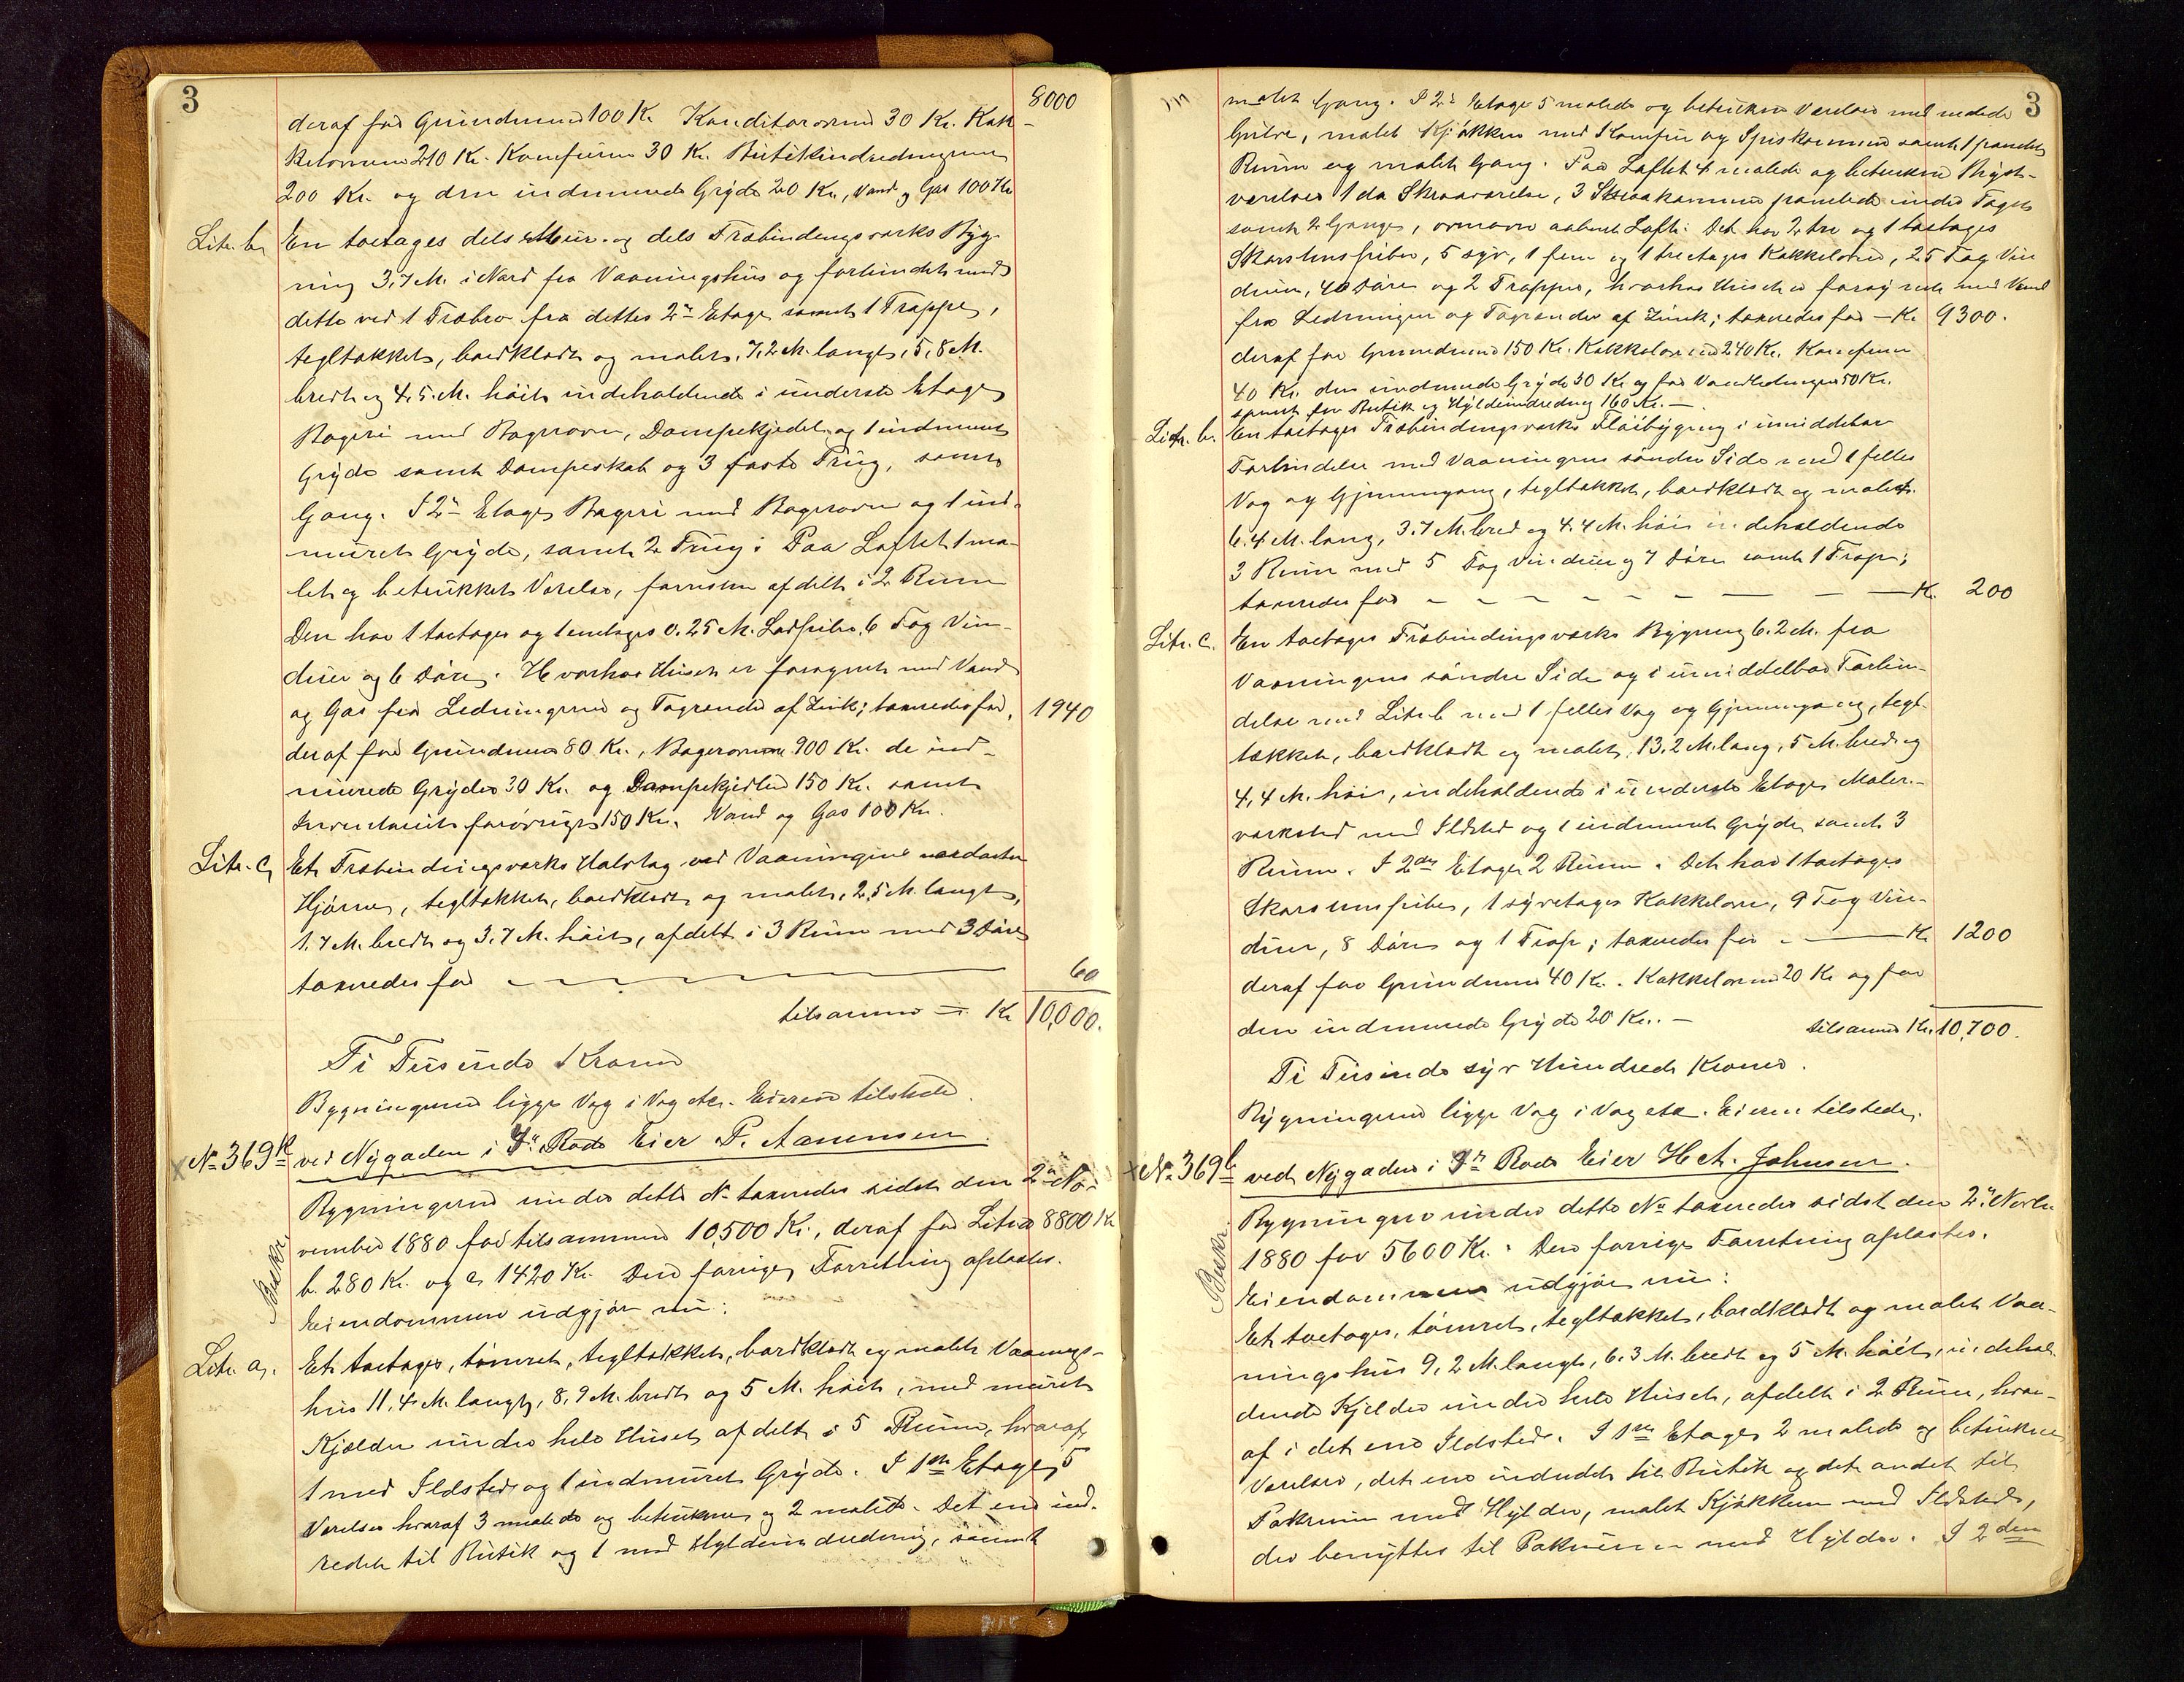 3
8000
deraf for Grundmuren 100 Kr. Konditorovnen 30 Kr. Kak-
kelovnene 210 Kr. Komfuren 30 Kr. Butikindredningerne
200 Kr. og den indmurede Gryde 20 Kr., Vand og Gas 100 Kr
Litr. b. En toetages dels Mur- og dels Træbindingsværks Byg-
ning 3,7 M. i Nord fra Vaaningshus og forbindet med
dette ved 1 Træbro fra dettes 2n Etage samt 1 Trappe,
tegltækket, bordklædt og malet, 7,2 M. langt, 5,8 M.
bredt og 4,5 M. höit indeholdende i underste Etage
Bageri med Bagerovn, Dampekjedel og 1 indmuret
Gryde samt Dampeskab og 3 faste Trug, samt
Gang. I 2n Etage Bageri med Bagerovn og 1 ind-
muret Gryde, samt 2 Trug; Paa Loftet 1 ma-
let og betrukket Værelse, forresten afdelt i 2 Rum
Den har 1 toetages og 1 enetages 0.25 M. Lodpibe, 6 Fag Vin-
duer og 6 Döre. Hvorhos Huset er forsynet med Vand
og Gas fra Ledningerne og Tagrender af Zink; taxeredes for, 1940
deraf for Grundmur 80 Kr., Bagerovnene 900 Kr. de ind-
murede Gryder 30 Kr. og Dampekjedlen 150 Kr. samt
Inventariet forövrigt 150 Kr. Vand og Gas 100 Kr.
Litr. c. Et Træbindingsværks Halvtag ved Vaaningens nordostre
Hjörne, tegltækket, bordklædt og malet, 2,5 M. langt,
1,7 M. bredt og 3,7 M. höit, afdelt i 3 Rum med 3 Döre
taxeredes for 60
tilsammen = Kr 10,000.
Ti Tusinde Kroner
Bygningerne ligge Væg i Væg etc. Eieren tilstede.
x No 369k ved Nygaden i 9n Rode Eier P. Aanensen.
Bygningerne under dette No taxeredes sidst den 2n No-
vember 1880 for tilsammen 10,500 Kr., deraf for Litr a 8800 Kr
b. 280 Kr. og c. 1420 Kr. Den forrige Forretning aflæstes.
Beskr.
Eiendommen udgjör nu:
Litr. a. Et toetages, tömret, tegltækket, bordklædt og malet Vaanings-
hus 11,4 M. langt, 8,9 M. bredt og 5 M. höit, med muret
Kjælder under hele Huset afdelt i 5 Rum, hvoraf
1 med Ildsted og 1 indmuret Gryde. I 1ste Etage 5
Værelser hvoraf 3 malede og betrukne og 2 malede. Det ene ind-
redet til Butik og 1 med Hyldeindredning, samt
3
malet Gang. I 2n Etage 5 malede og betrukne Værelser med malede
Gulve, malet Kjökken med Komfur og Spiskammer samt 1 panelet
Rum og malet Gang. Paa Loftet 4 malede og betrukne Bryst-
værelser 1 do Skraaværelse, 3 Skraakammer panelede under Taget
samt 2 Gange, ovenover aabent Loft. Det har 2 tre og 1 toetages
Skorstenspiber, 5 syv, 1 fem og 1 treetages Kakkelovn, 25 Fag Vin
duer, 40 Döre og 2 Trapper, hvorhos Huset er forsynet med Vand
fra Ledningen og Tagrender af Zink; taxeredes for – Kr. 9300.
deraf for Grundmuren 150 Kr. Kakkelovnene 240 Kr. Komfuren
40 Kr. den indmurede Gryde 30 Kr. og for Vandledningen 50 Kr.
samt for Butik og Hyldeindredning 160 Kr. –
Litr. b. En toetages Træbindingsværks Flöibygning i umiddelbar
Forbindelse med Vaaningens söndre Side med 1 fælles
Væg og Gjennemgang, tegltækket, bordklædt og malet.
6.4 M. lang, 3.7 M. bred og 4.4 M. höi indeholdende
3 Rum med 5 Fag Vinduer og 7 Döre samt 1 Trap;
taxeredes for – – – – – Kr. 200
Litr. c. En toetages Træbindingsværks Bygning 6.2 M. fra
Vaaningens söndre Side og i umiddelbar Forbin-
delse med Litr b med 1 fælles Væg og Gjennemgang, tegl-
tækket, bordklædt og malet, 13.2 M. lang, 5 M. bred og
4,4 M. höi, indeholdende i underste Etage Maler-
værksted med Ildsted og 1 indmuret Gryde samt 3
Rum. I 2den Etage 2 Rum. Det har 1 toetages
Skorstenspibe, 1 syvetages Kakkelovn, 9 Fag Vin-
duer, 8 Döre og 1 Trap; taxeredes for – Kr 1200
deraf for Grundmuren 40 Kr. Kakkelovnen 20 Kr og for
den indmurede Gryde 20 Kr. – tilsammen Kr. 10,700.
Ti Tusinde syv Hundrede Kroner.
Bygningerne ligge Væg i Væg etc. Eieren tilstede.
x No 369l ved Nygaden i 9n Rode Eier H. A. Johnsen.
Bygningen under dette No taxeredes sidst den 2n Novbr
1880 for 5600 Kr. Den forrige Forretning aflæstes.
Beskr.
Eiendommen udgjör nu:
Et toetages, tömret, tegltækket, bordklædt og malet Vaa-
ningshus 9,2 M. langt, 6.3 M. bredt og 5 M. höit, indehol-
dende Kjelder under hele Huset, afdelt i 2 Rum, hvor-
af i det ene Ildsted. I 1ste Etage 2 malede og betrukne
Værelser, det ene indredet til Butik og det andet til
Pakrum med Hylder, malet Kjökken med Ildsted,
der benyttes til Pakrum med Hylder. I 2den